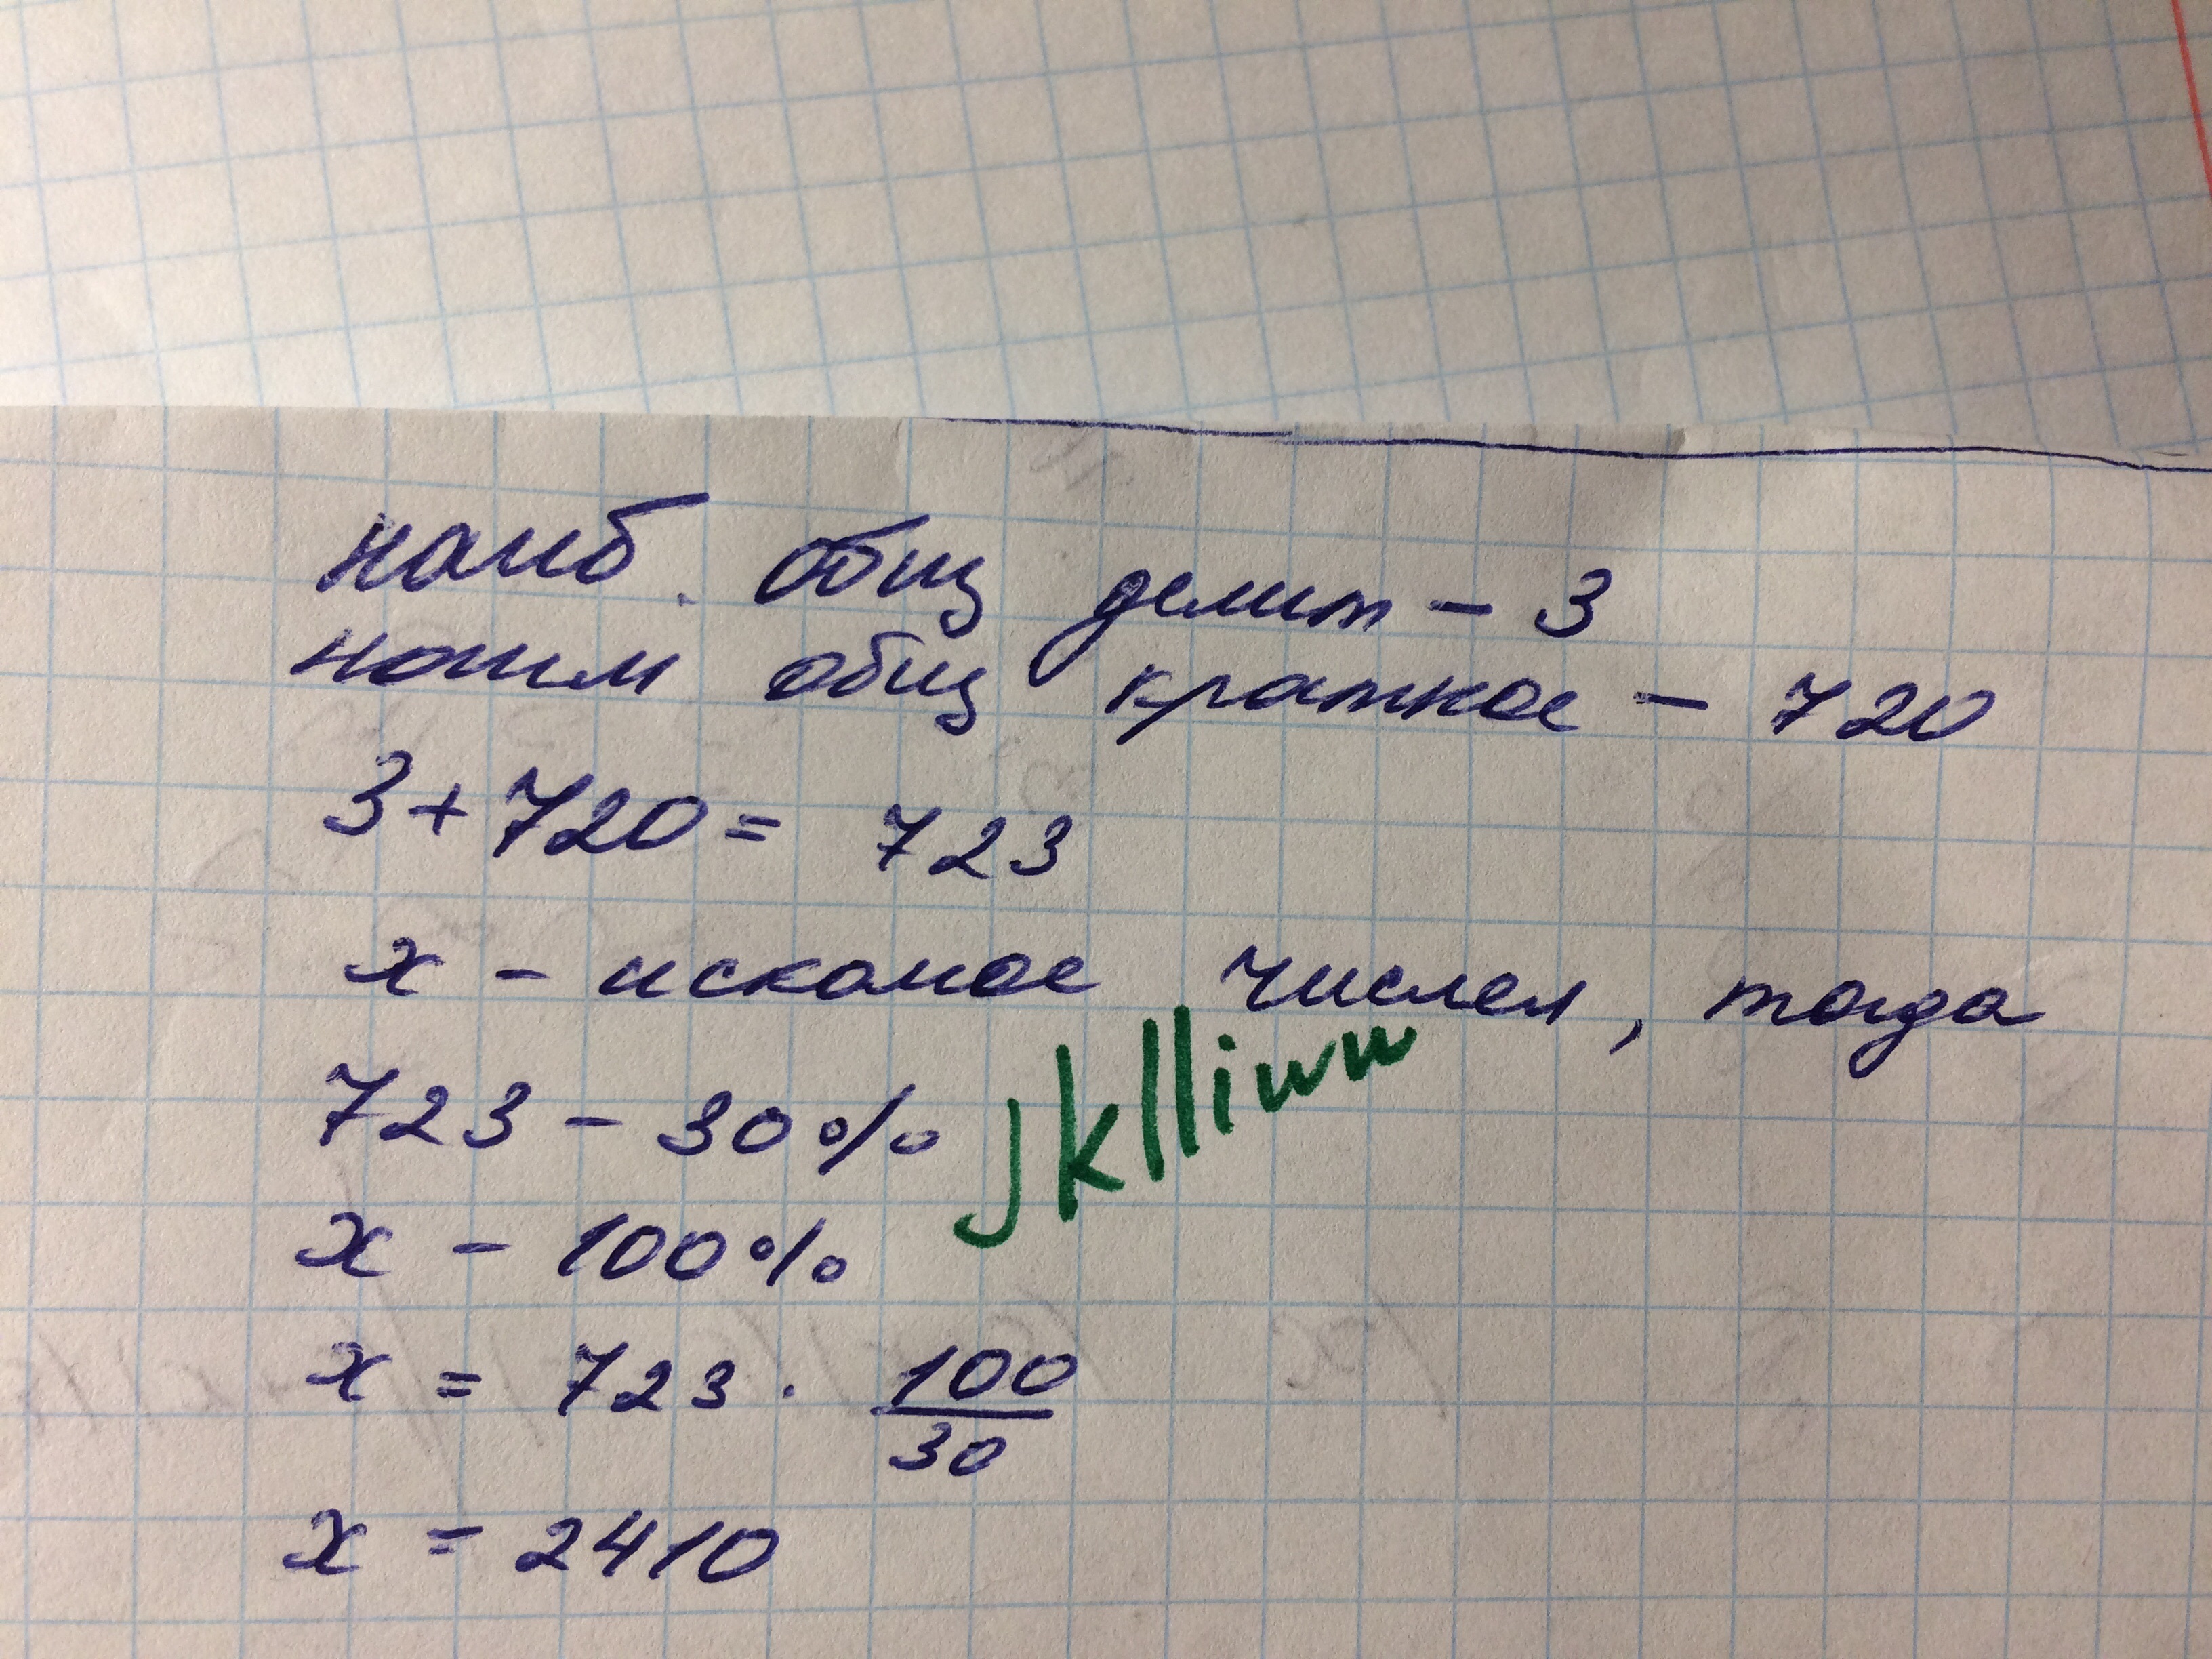 наиб. общ делит - 3
наим общ кратное - 720
3 + 720 = 723
x - искомое числел, тогда
723 - 30%
jklliww
x - 100%
x = 723 · 100/30
x = 2410